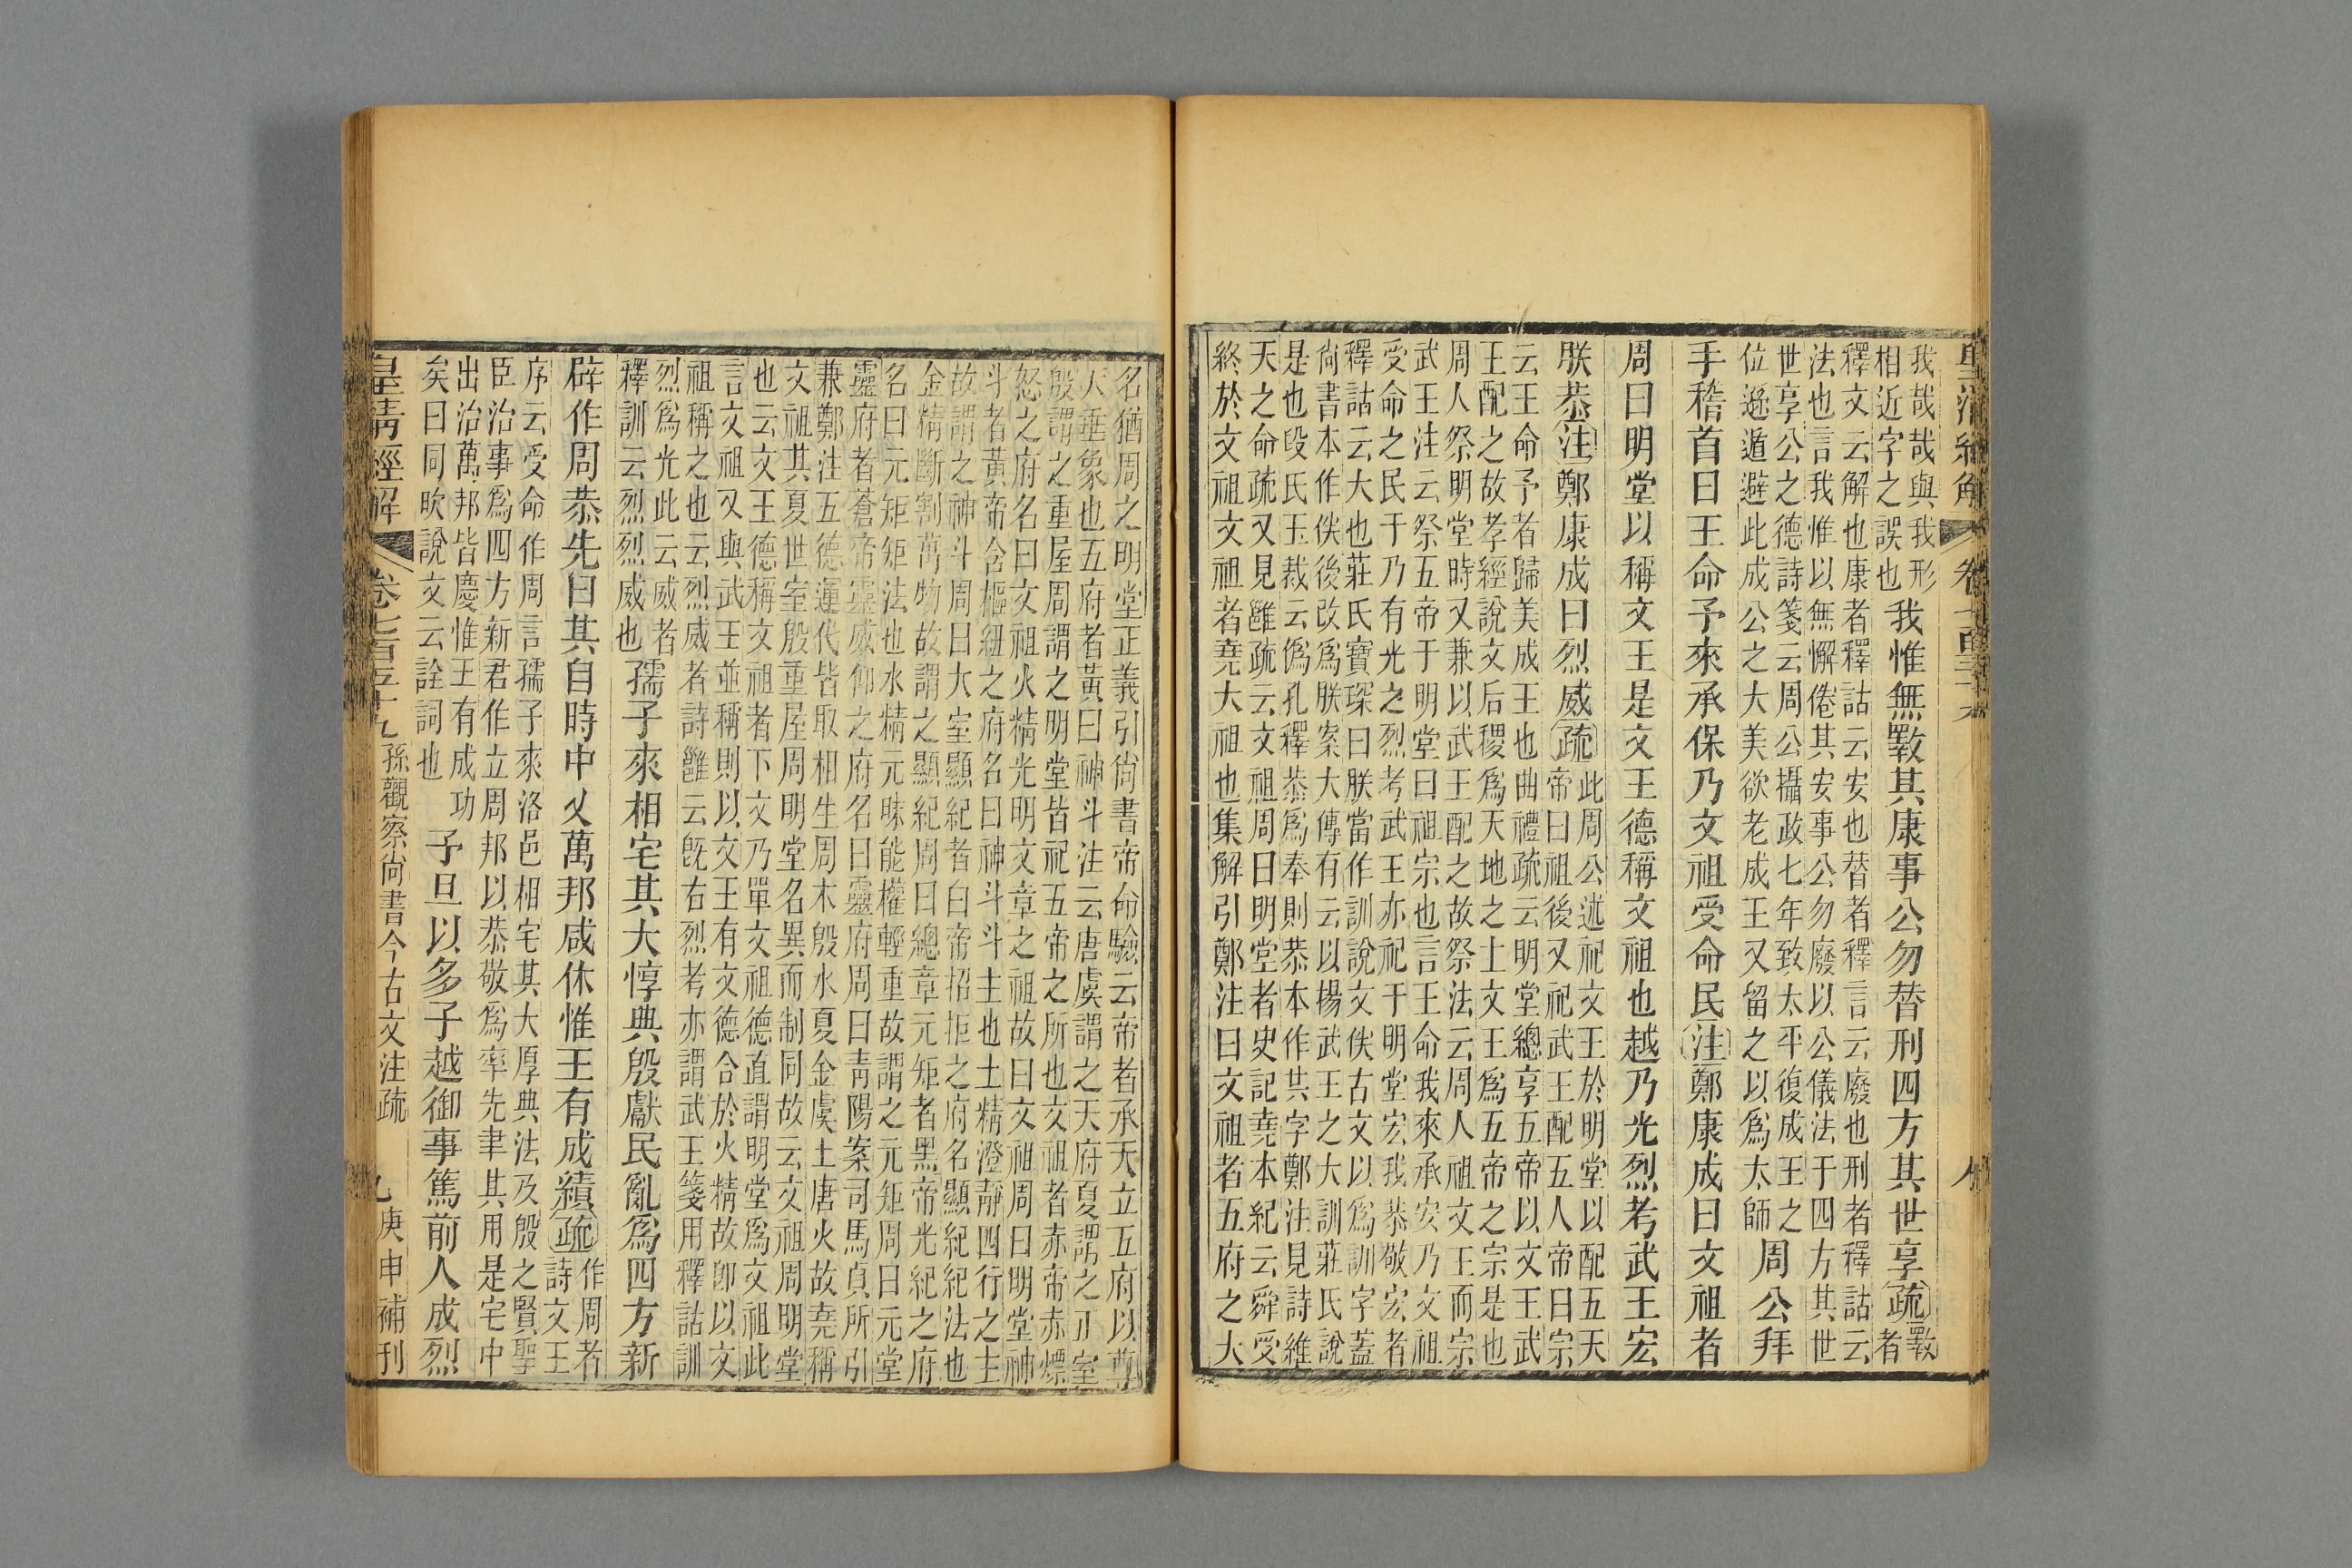 皇清經解 卷七百五十九 八
我哉哉與我形
相近字之誤也
我惟無斁其康事公勿替刑四方其世享疏斁
者
釋文云解也康者釋詁云安也替者釋言云廢也刑者釋詁云
法也言我惟以無懈倦其安事公勿廢以公儀法于四方其世
世享公之德詩箋云周公攝政七年致太平復成王之
位遜遁避此成公之大美欲老成王又留之以爲太師
周公拜
手稽首曰王命予來承保乃文祖受命民注鄭康成曰文祖者
周曰明堂以稱文王是文王德稱文祖也越乃光烈考武王宏
朕恭注鄭康成曰烈威疏
此周公述祀文王於明堂以配五天
帝曰祖後又祀武王配五人帝曰宗
云王命予者歸美成王也曲禮疏云明堂總享五帝以文王武
王配之故孝經說文后稷爲天地之主文王爲五帝之宗是也
周人祭明堂時又兼以武王配之故祭法云周人祖文王而宗
武王注云祭五帝于明堂曰祖宗也言王命我來承安乃文祖
受命之民于乃有光之烈考武王亦祀于明堂宏我恭敬宏者
釋詁云大也莊氏寶琛曰朕當作訓說文佚古文以爲訓字蓋
尙書本作佚後改爲朕案大傳有云以揚武王之大訓莊氏說
是也段氏玉裁云僞孔釋恭爲奉則恭本作共字鄭注見詩維
天之命疏又見雝疏云文祖周曰明堂者史記堯本紀云舜受
終於文祖文祖者堯大祖也集解引鄭注曰文祖者五府之大
名猶周之明堂正義引尙書帝命驗云帝者承天立五府以尊
天垂象也五府者黃曰神斗注云唐虞謂之天府夏謂之世室
殷謂之重屋周謂之明堂皆祀五帝之所也文祖者赤帝赤熛
怒之府名曰文祖火精光明文章之祖故曰文祖周曰明堂神
斗者黃帝含樞紐之府名曰神斗斗主也土精澄靜四行之主
故謂之神斗周曰大室顯紀者白帝招拒之府名顯紀紀法也
金精斷割萬物故謂之顯紀周曰總章元矩者黑帝光紀之府
名曰元矩矩法也水精元昧能權輕重故謂之元矩周曰元堂
靈府者蒼帝靈威仰之府名曰靈府周曰靑陽案司馬貞所引
兼鄭注五德運代皆取相生周木殷水夏金虞土唐火故堯稱
文祖其夏世室殷重屋周明堂名異而制同故云文祖周明堂
也云文王德稱文祖者下文乃單文祖德直謂明堂爲文祖此
言文祖又與武王並稱則以文王有文德合於火精故卽以文
祖稱之也云烈威者詩雝云旣右烈考亦謂武王箋用釋詁訓
烈爲光此云威者
釋訓云烈烈威也
孺子來相宅其大惇典殷獻民亂爲四方新
辟作周恭先曰其自時中乂萬邦咸休惟王有成績疏
作周者
詩文王
序云受命作周言孺子來洛邑相宅其大厚典法及殷之賢聖
臣治事爲四方新君作立周邦以恭敬爲率先聿其用是宅中
出治萬邦皆慶惟王有成功
矣曰同欥說文云詮詞也
予旦以多子越御事篤前人成烈
皇淸經解 卷七百五十九 孫觀察尙書今古文注疏 九 庚申補刊